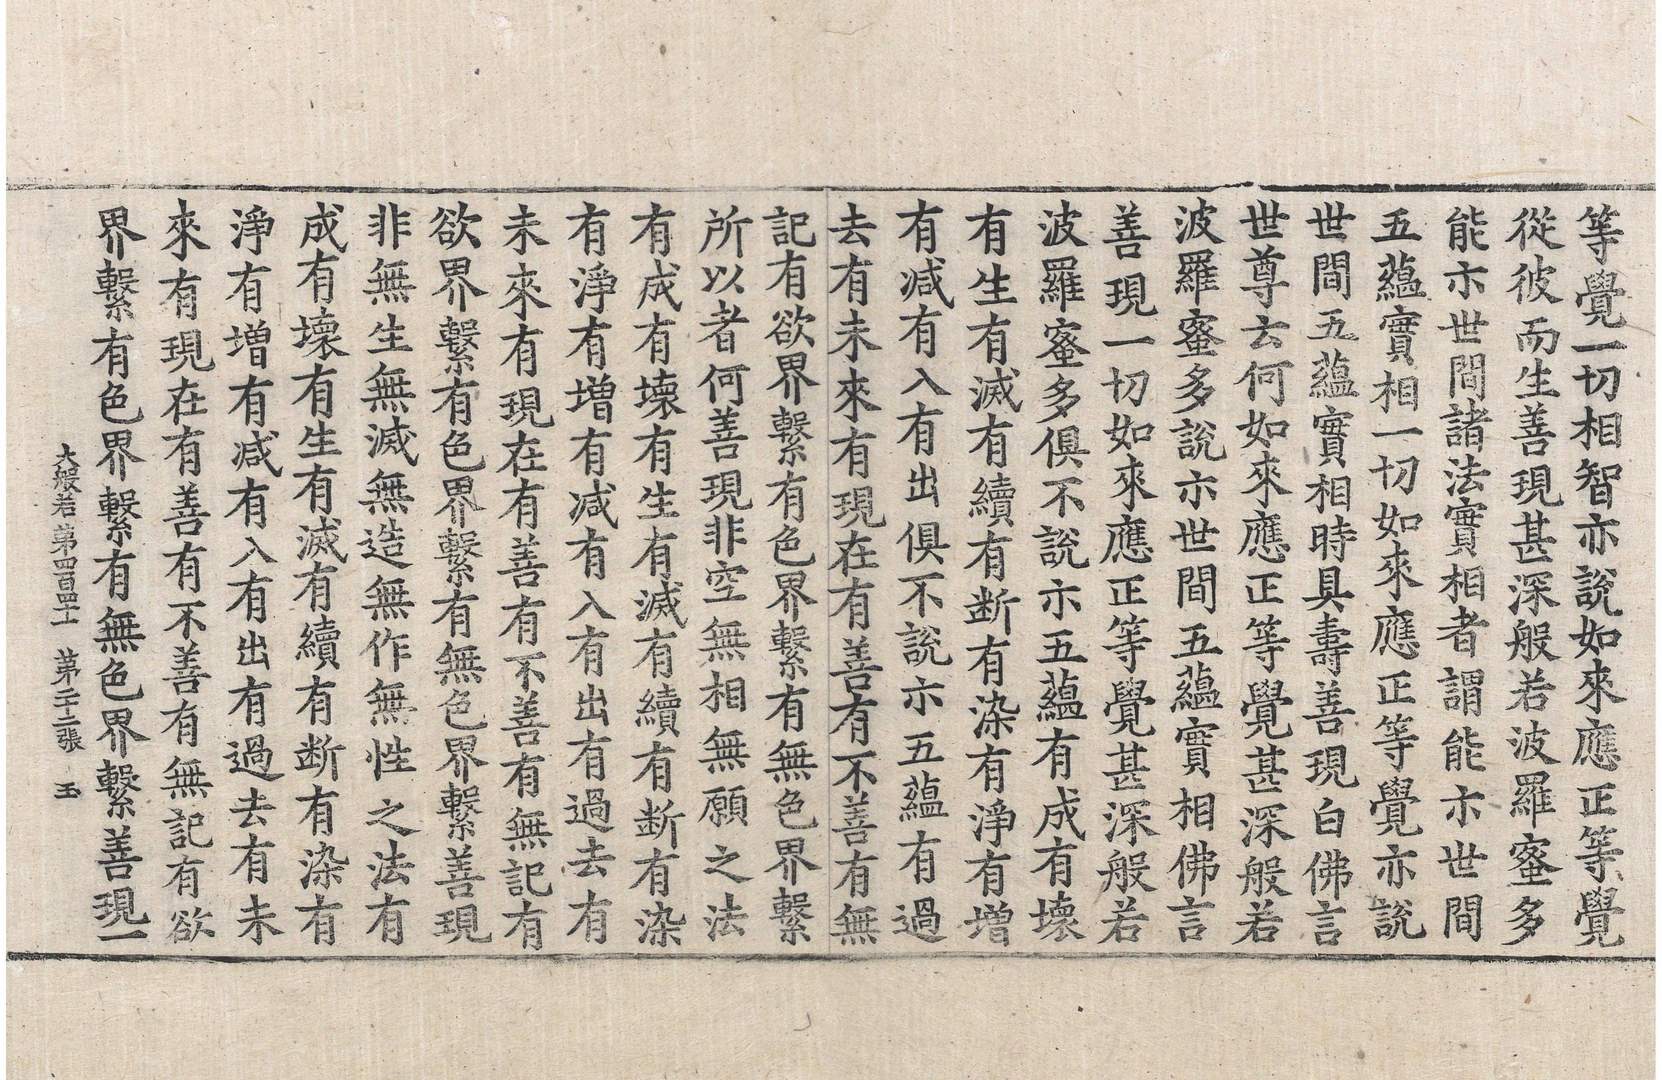 等覺一切相智亦說如來應正等覺
從彼而生善現甚深般若波羅蜜多
能示世間諸法實相者謂能示世間
五蘊實相一切如來應正等覺亦說
世間五蘊實相時具壽善現白佛言
世尊云何如來應正等覺甚深般若
波羅蜜多說示世間五蘊實相佛言
善現一切如來應正等覺甚深般若
波羅蜜多俱不說示五蘊有成有壞
有生有滅有續有断有染有淨有增
有減有入有出俱不說示五蘊有過
去有未來有現在有善有不善有無
記有欲界繫有色界繫有無色界繫
所以者何善現非空無相無願之法
有成有壞有生有滅有續有断有染
有淨有增有減有入有出有過去有
未來有現在有善有不善有無記有
欲界繫有色界繫有無色界繫善現
非無生無滅無造無作無性之法有
成有壞有生有滅有續有断有染有
淨有增有減有入有出有過去有未
來有現在有善有不善有無記有欲
界繫有色界繫有無色界繫善現一
大般若第四百四十一 第二十二張 玉